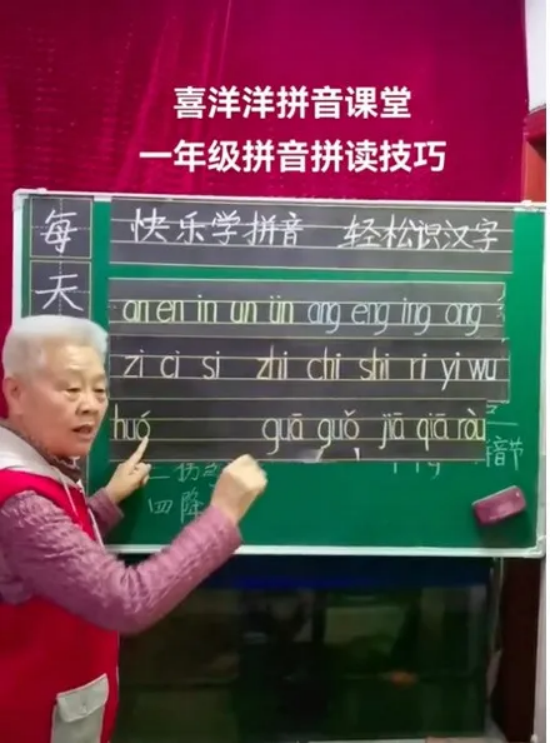 喜洋洋拼音课堂
一年级拼音拼读技巧
每天
快乐学拼音 轻松识汉字
an en in un ün ang eng ing ong
zi ci si zhi chi shi ri yi wu
huó guā guǒ jiā qiā ròu
音节
四降